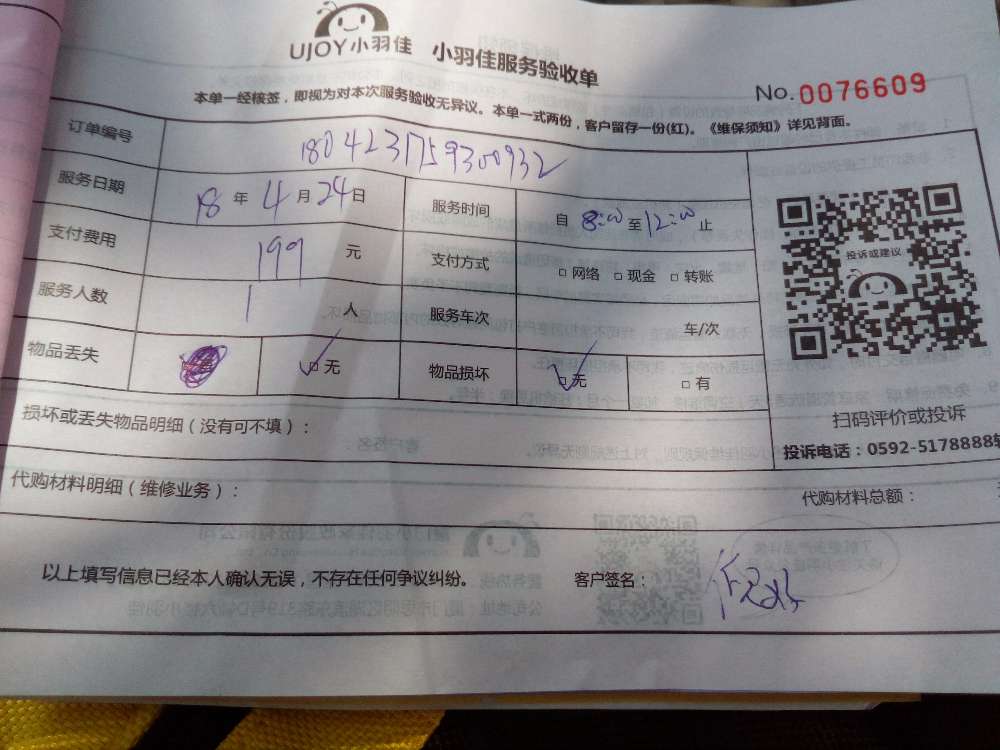 UJOY小羽佳 小羽佳服务验收单
No.0076609
本单一经核签，即视为对本次服务验收无异议。本单一式两份，客户留存一份(红)。《维保须知》详见背面。
订单编号 1804231759300932
服务日期 18 年 4 月 24 日 服务时间 自 8:00 至 12:00 止
支付费用 199 元 支付方式 □ 网络 □ 现金 □ 转账
服务人数 1 人 服务车次 车/次
物品丢失 □ 无 物品损坏 □ 无 □ 有
投诉或建议
扫码评价或投诉
损坏或丢失物品明细（没有可不填）：
投诉电话：0592-5178888转
代购材料明细（维修业务）：
代购材料总额：
以上填写信息已经本人确认无误，不存在任何争议纠纷。 客户签名：